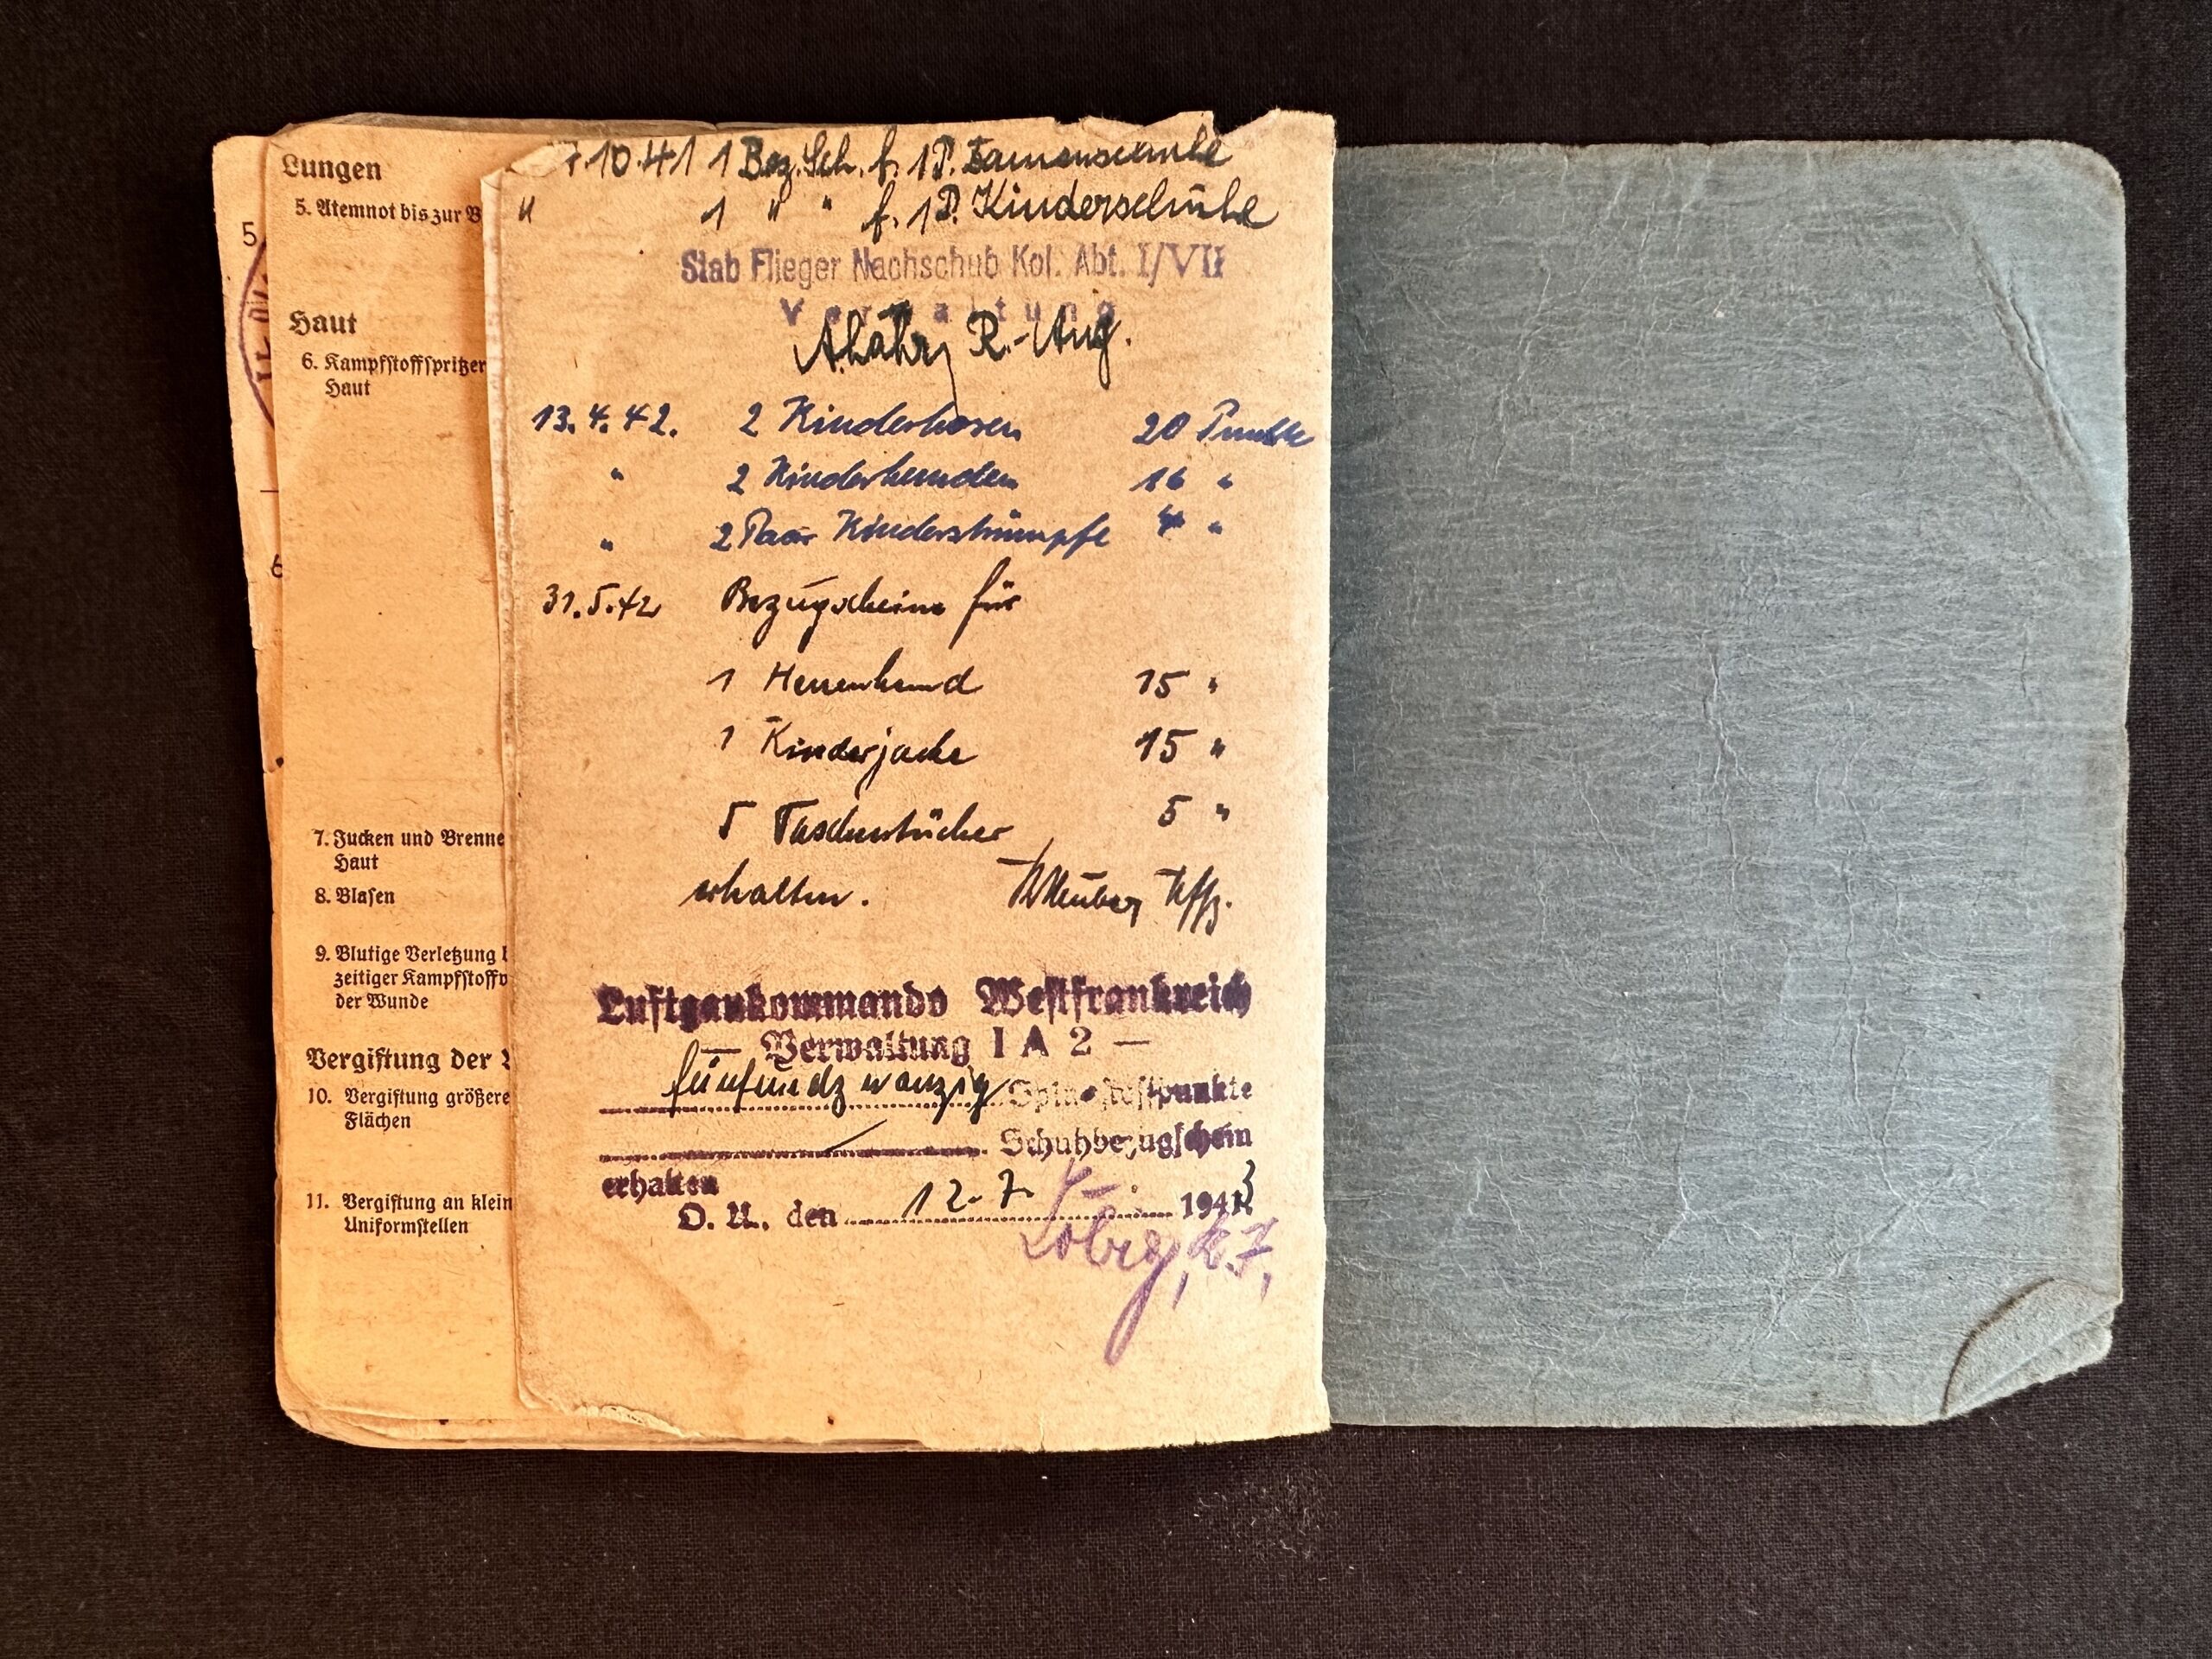 Lungen
5. Atemnot bis zur B
Haut
6. Kampfstoffspritzer
Haut
7. Jucken und Brenne
Haut
8. Blasen
9. Blutige Verletzung
zeitiger Kampfstoffv
der Wunde
Vergiftung der
10. Vergiftung größere
Flächen
11. Vergiftung an klein
Uniformstellen
5
6
10.41 1 Bez. Sch. f. 1 P. Damenschuhe
" 1 " " f. 1 P. Kinderschuhe
Stab Flieger Nachschub Kol. Abt. I/VII
Verwaltung
R.-Ang.
13.4.42. 2 Kinderhosen 20 Punkte
" 2 Kinderhemden 16 "
" 2 Paar Kinderstrümpfe 4 "
31.5.42 Bezugscheine für
1 Herrenhemd 15 "
1 Kinderjacke 15 "
5 Taschentücher 5 "
erhalten. Uffz.
Luftgaukommando Westfrankreich
— Verwaltung I A 2 —
fünfundzwanzig Spinnstoffpunkte
Schuhbezugschein
erhalten
O. U., den 12.7. 1943